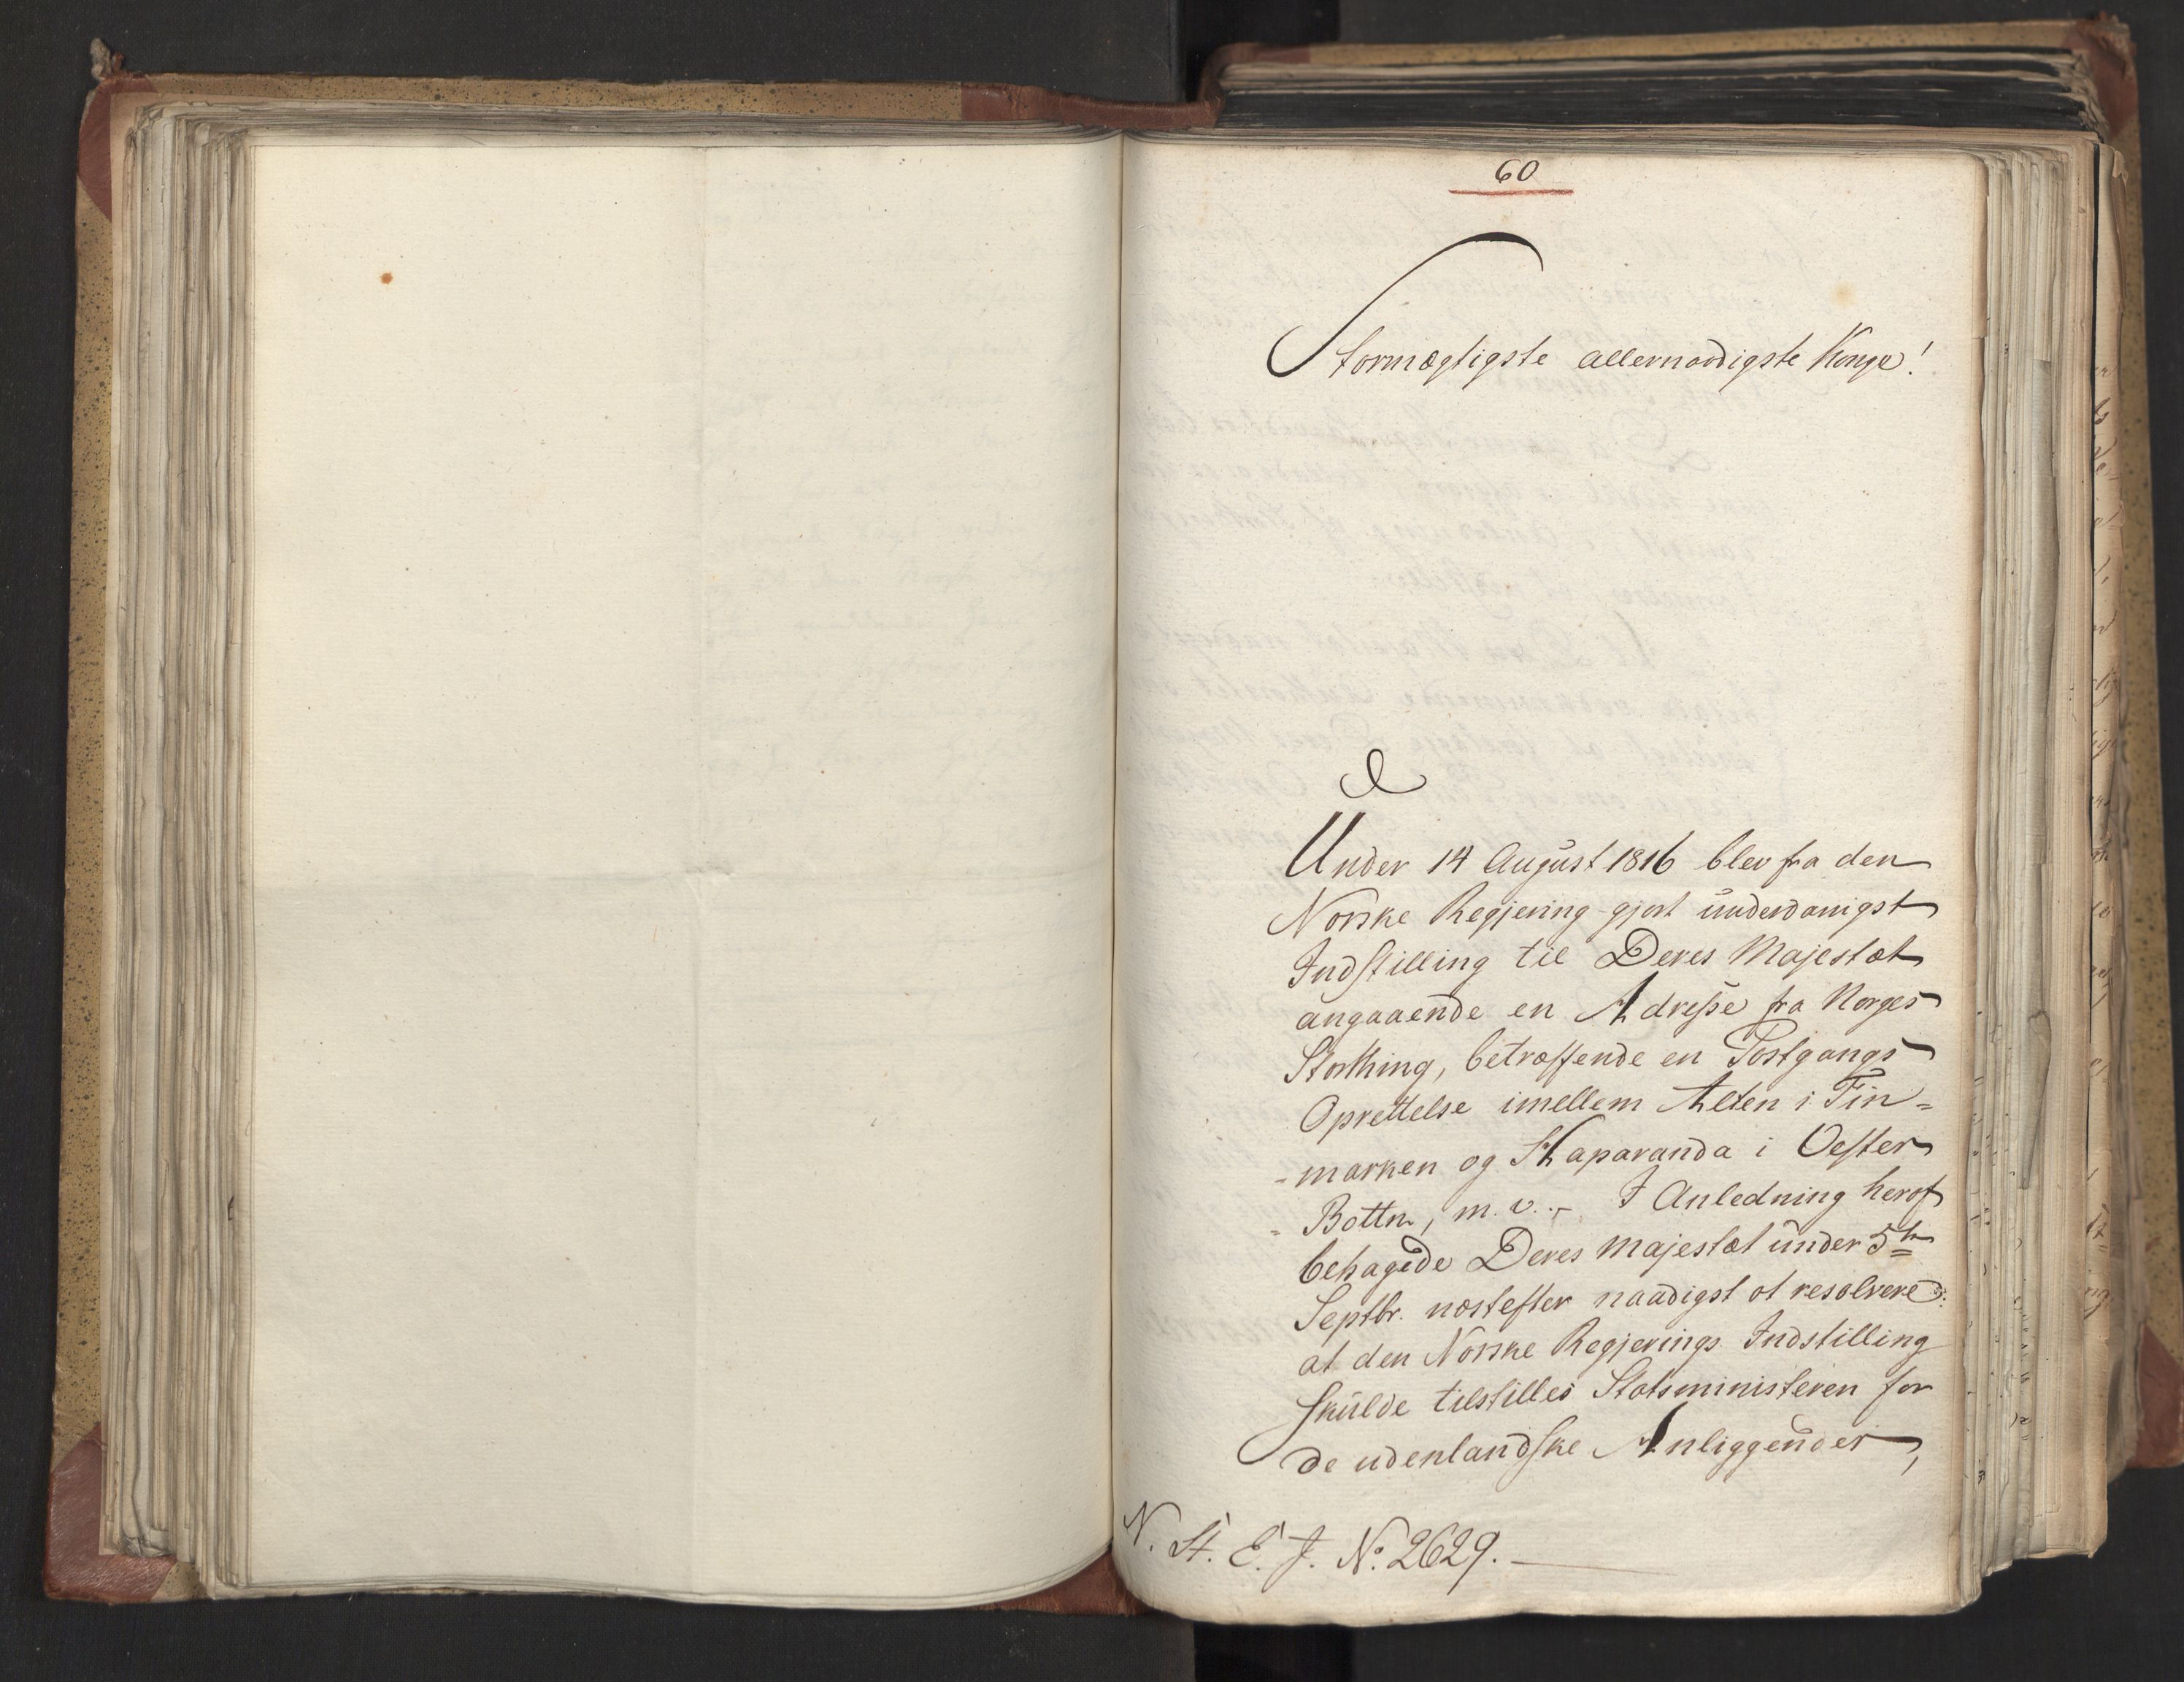 60
Stormægtigste allernaadigste Konge!
Under 14 August 1816 blev fra den
Norske Regjering gjort underdanigst
Indstilling til Deres Majestæt
angaaende en Adresse fra Norges
Storthing, betræffende en Postgangs
Oprettelse imellem Alten i Fin=
=marken og Haparanda i Vester
=Bottn, m. v. - I Anledning heraf
behagede Deres Majestæt under 5te
Septbr. næstefter naadigst at resolvere:
at den Norske Regjerings Indstilling
skulde tilstilles Statsministeren for
de udenlandske Anliggender,
N. St. E. J. No. 2629.